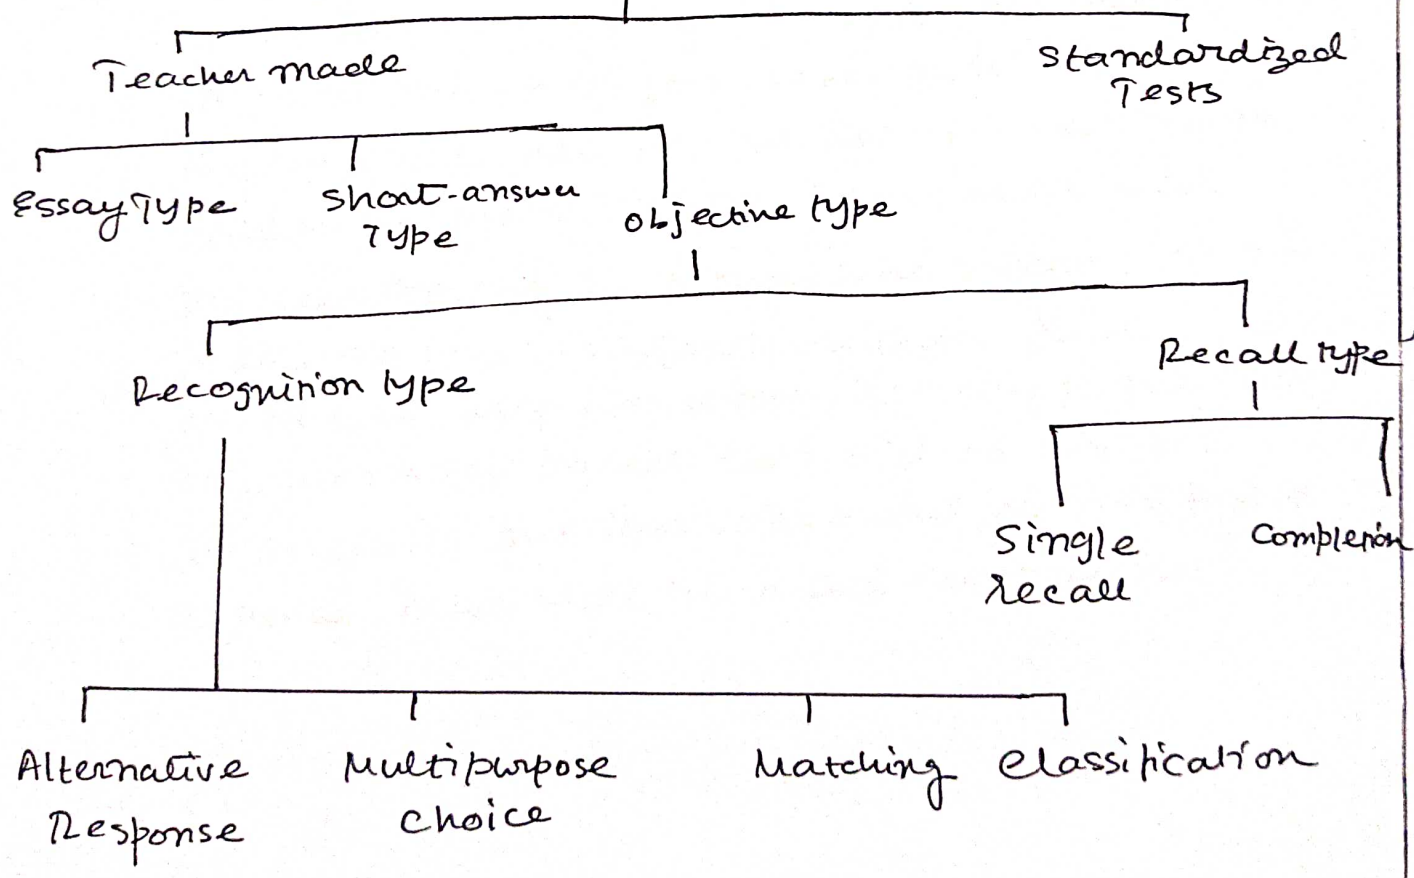 Teacher made
Standardized
Tests
Essay Type
Short-answer
Type
Objective type
Recognition type
Recall type
Single
recall
Completion
Alternative
Response
Multipurpose
choice
Matching
Classification